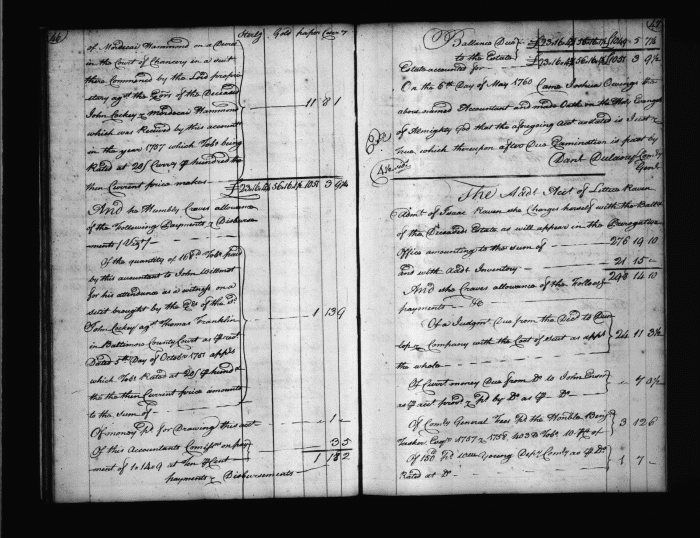 46
Sterlg Gold paper Curr y
of Mordecai Hammond on a Decree
in the Court of Chancery in a suit
there Commenced by the Lord proprie
tary agst the Exrs of the Deceased
John Lockey & Mordecai Hammond 11 8 1
which was Received by this accountant
in the year 1757 which Tobo being
Rated at 20/ Curry hundred the
then Current price makes
1051 3 9¼
And he Humbly Craves allowance
of the Following Payments & Disburse
ments (Vizt)
Of the quantity of 168 Tobo paid
by this accountant to John Willmot
for his attendance as a witness on a
suit brought by the Exs of the sd
John Lockey agst Thomas Franklin 1 13 9
in Baltimore County Court as
Dated 5th Day of October 1751 appd
which Tobo Rated at 20/ hund &
the then Current price amounts
to the sum of
Of money pd for Drawing this acct 1
Of this Accountants Comisson on pay 3 5
ment of 1 14 9 at Ten Cent
payments & Disbursements 1 18 2
Ballance Due
to the Estate 5 7½
Estate accounted for 1051 3 9¼
On the 6th Day of May 1760 Came Joshua Owings the
above named Accountant and made Oath on the Holy Evangels
of Almighty God that the aforegoing acct as stated is Just &
true which thereupon after Due Examination is past by
Danl Dulany Comry
Genl
The Addl Acct of Lettice Raven
Admx of Isaac Raven she Charges herself with the Balla
of the Deceased Estate as will appear in the Perogative
Office amounting to the sum of 276 19 10
and with Addl Inventory 21 15
298 14 10
And she Craves allowance of the Follow
payments
Of a Judgmt Due from the Decd to
& Company with the Cost of suit as appd 24 11 3½
the whole
Of Currt money Due from Do to John
as acct provd & pd by Do as Do 7
Of Comry General Fees pd the Honble Benj
Tasker Esqr 1757 & 1758 3 12 6
Rated at Do 1 7